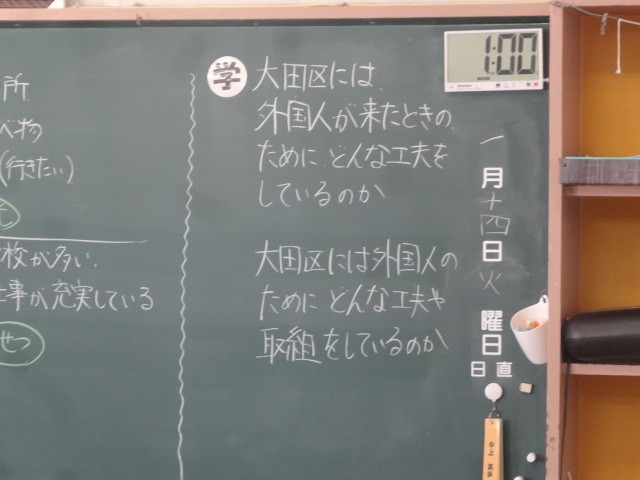 1:00
一月十四日火曜日
日直
学
大田区には
外国人が来たときの
ために どんな工夫を
しているのか
大田区には外国人の
ために どんな工夫や
取組をしているのか
所
べ物
(行きたい)
校が多い
事が充実している
せつ